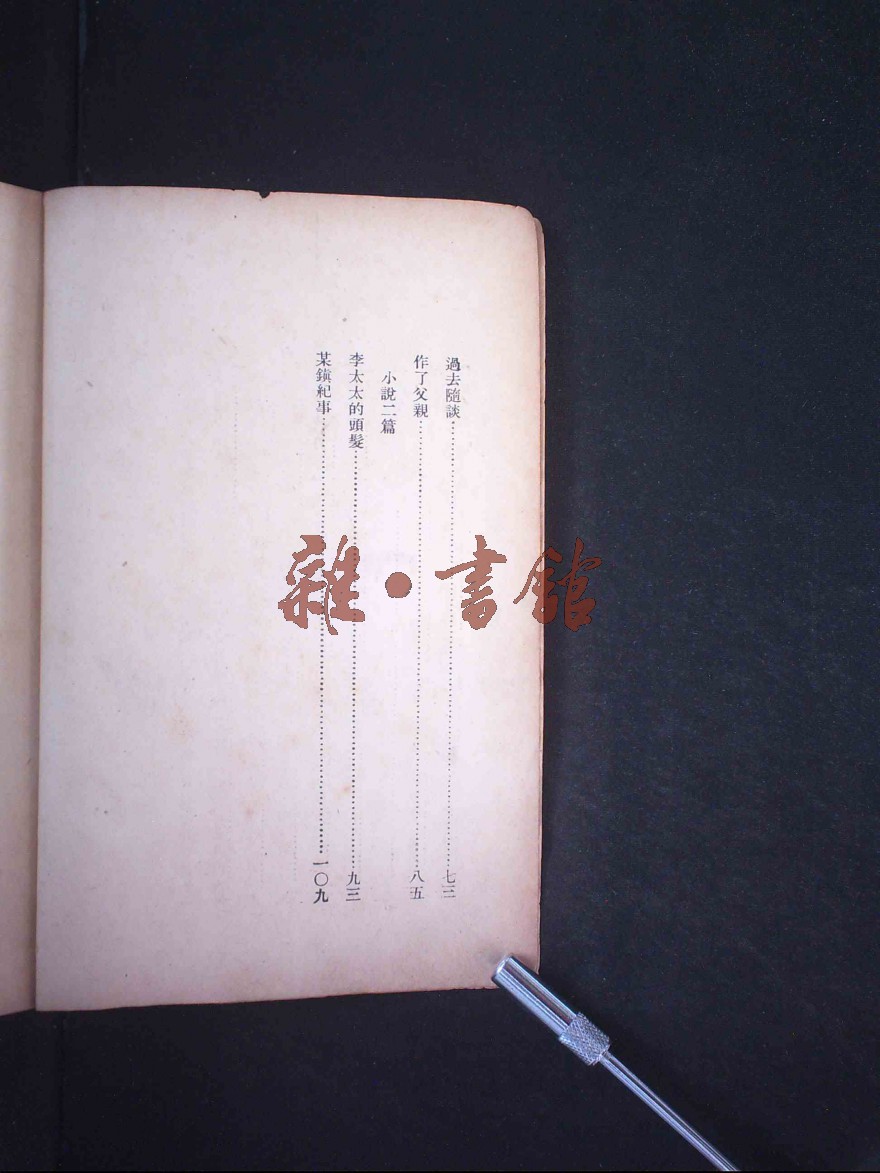 過去隨談……七三
作了父親……八五
小說二篇
李太太的頭髮……九三
某鎭紀事……一〇九
雜・書館